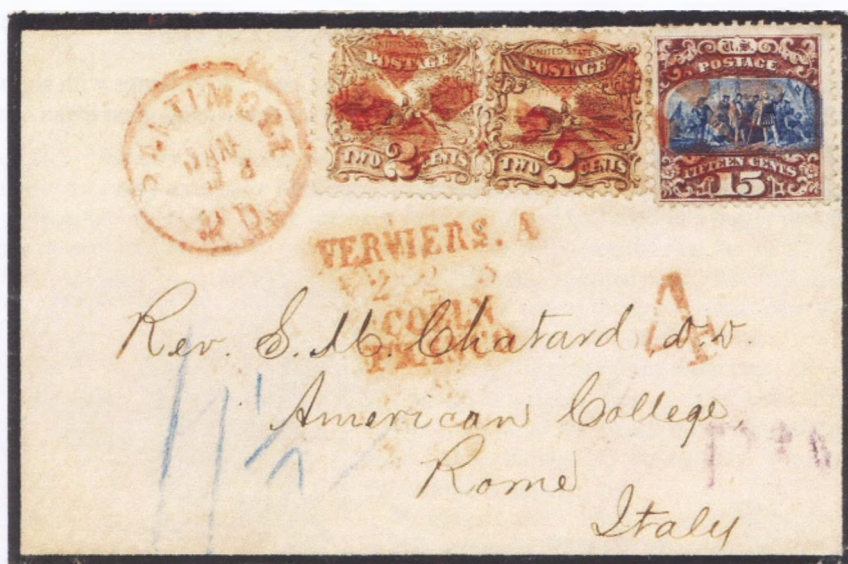 UNITED STATES
POSTAGE
TWO 2 CENTS
UNITED STATES
POSTAGE
TWO 2 CENTS
U.S.
POSTAGE
FIFTEEN CENTS
15
BALTIMORE
JAN
MD.
VERVIERS. A
COELN
FRANCO
A
Rev. S. M. Chatard D.D.
American College,
Rome
Italy